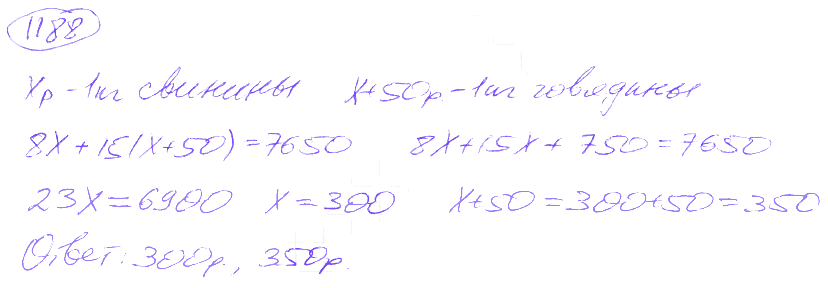 1188
Xр - 1кг свинины X+50р - 1кг говядины
8X+15(X+50)=7650 8X+15X+750=7650
23X=6900 X=300 X+50=300+50=350
Ответ: 300р, 350р.